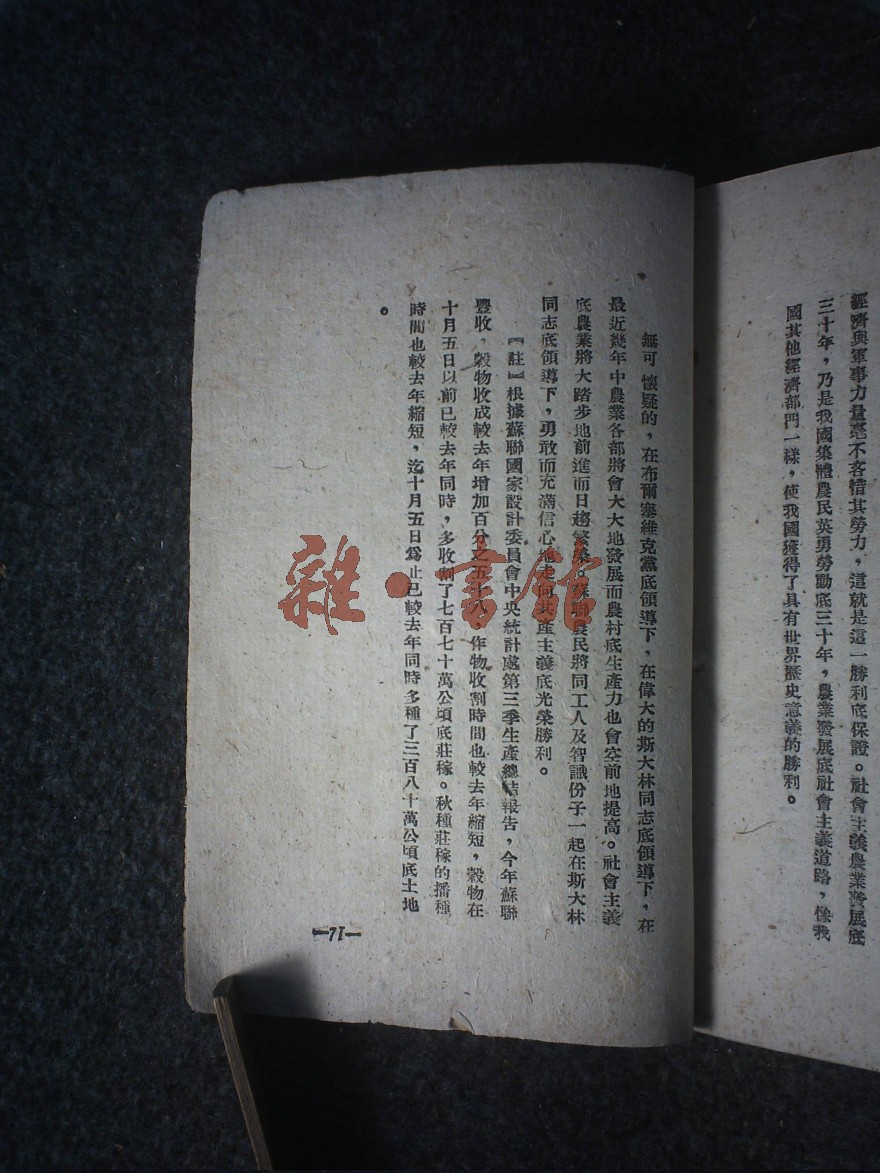 經濟與軍事力量毫不吝惜其勞力，這就是這一勝利底保證。社會主義農業發展底
三十年，乃是我國集體農民英勇勞動底三十年，農業發展底社會主義道路，像我
國其他經濟部門一樣，使我國獲得了具有世界歷史意義的勝利。
無可懷疑的，在布爾塞維克黨底領導下，在偉大的斯大林同志底領導下，在
最近幾年中農業各部將會大大地發展而農村底生產力也會空前地提高。社會主義
底農業將大踏步地前進而日趨繁榮。蘇聯農民將同工人及智識份子一起在斯大林
同志底領導下，勇敢而充滿信心地走向共產主義底光榮勝利。
【註】根據蘇聯國家設計委員會中央統計處第三季生產總結報告，今年蘇聯
豐收，穀物收成較去年增加百分之五十八，作物收割時間也較去年縮短，穀物在
十月五日以前已較去年同時，多收割了七百七十萬公頃底莊稼。秋種莊稼的播種
時間也較去年縮短，迄十月五日為止已較去年同時多種了三百八十萬公頃底土地
。
—71—
雜·書館